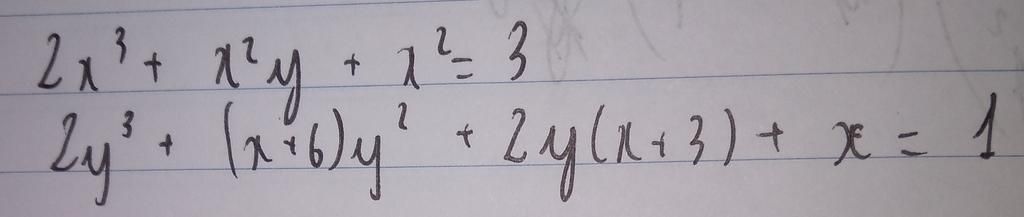 2x³ + x²y + x² = 3
2y³ + (x+6)y² + 2y(x+3) + x = 1